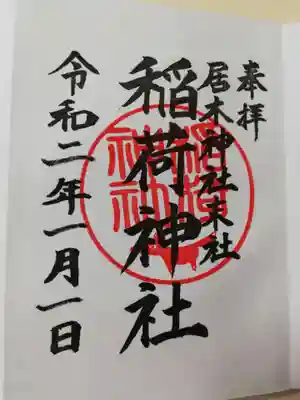 奉拝
居木神社末社
稲荷神社
令和二年一月一日